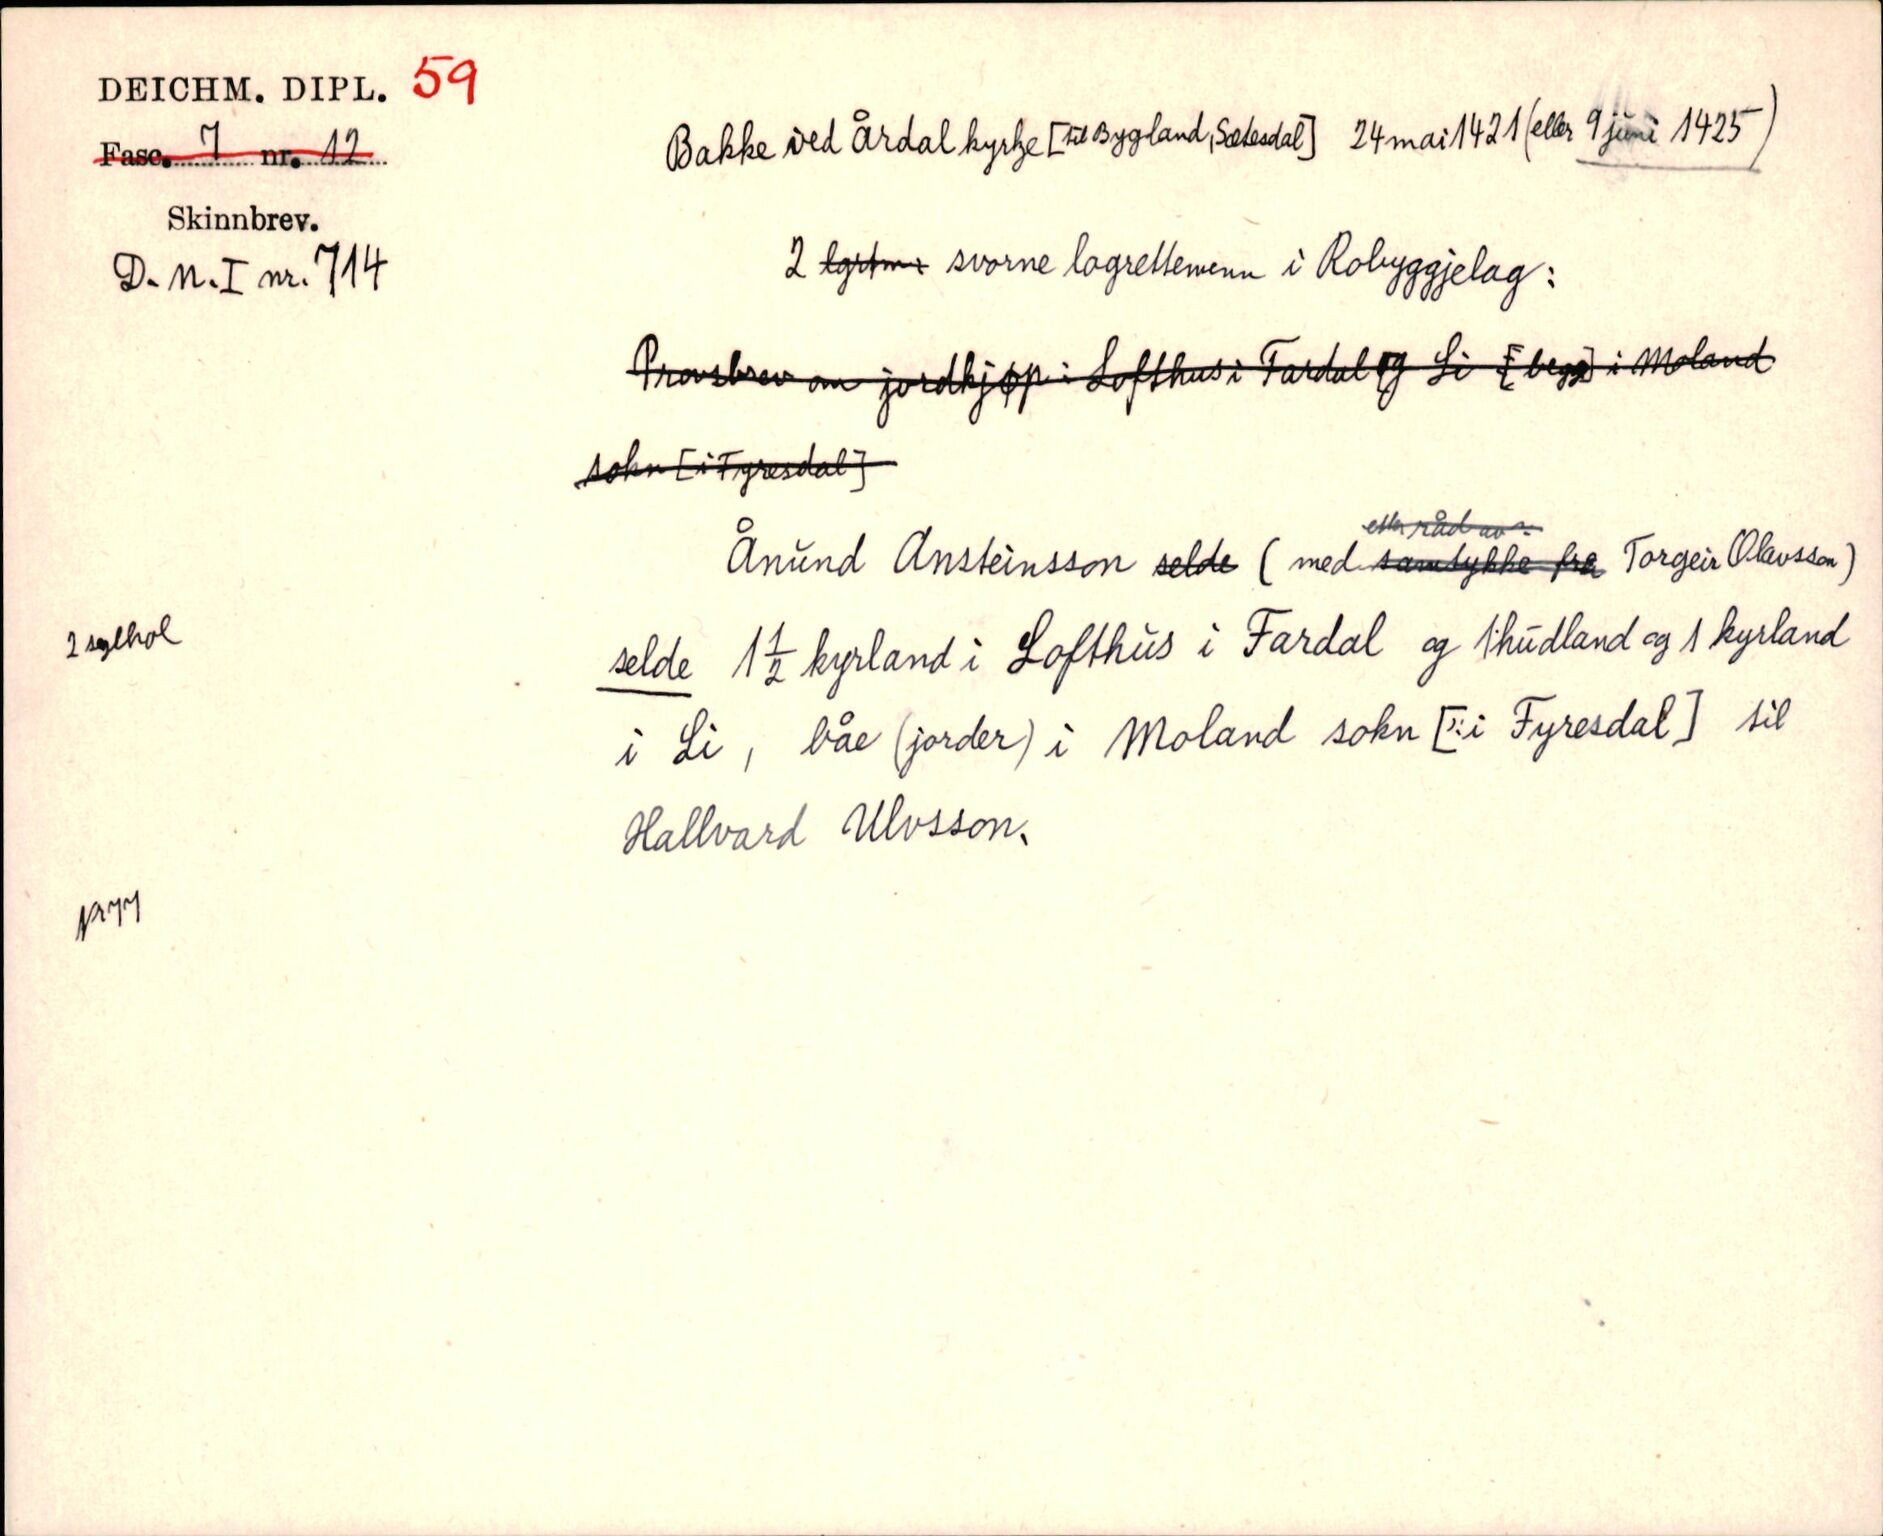 DEICHM. DIPL. 59
Fasc. 7 nr. 12
Skinnbrev.
D. N. I nr. 714
Bakke ved Årdal kyrkje [til Bygland, Sætesdal] 24 mai 1421 (eller 9 juni 1425)
2 lgrtm: svorne lagrettemenn i Robyggjelag:
Provsbrev om jordkjøp i Lofthus i Fardal og Li [begge] i Moland
sokn [i Fyresdal]
etter råd av
Ånund Ansteinsson selde (med samtykke fra Torgeir Olavsson)
2 seglhol
selde 1 1/2 kyrland i Lofthus i Fardal og 1 hudland og 1 kyrland
i Li, båe (jorder) i Moland sokn [ɔ: i Fyresdal] til
Hallvard Ulvsson.
Nr 77